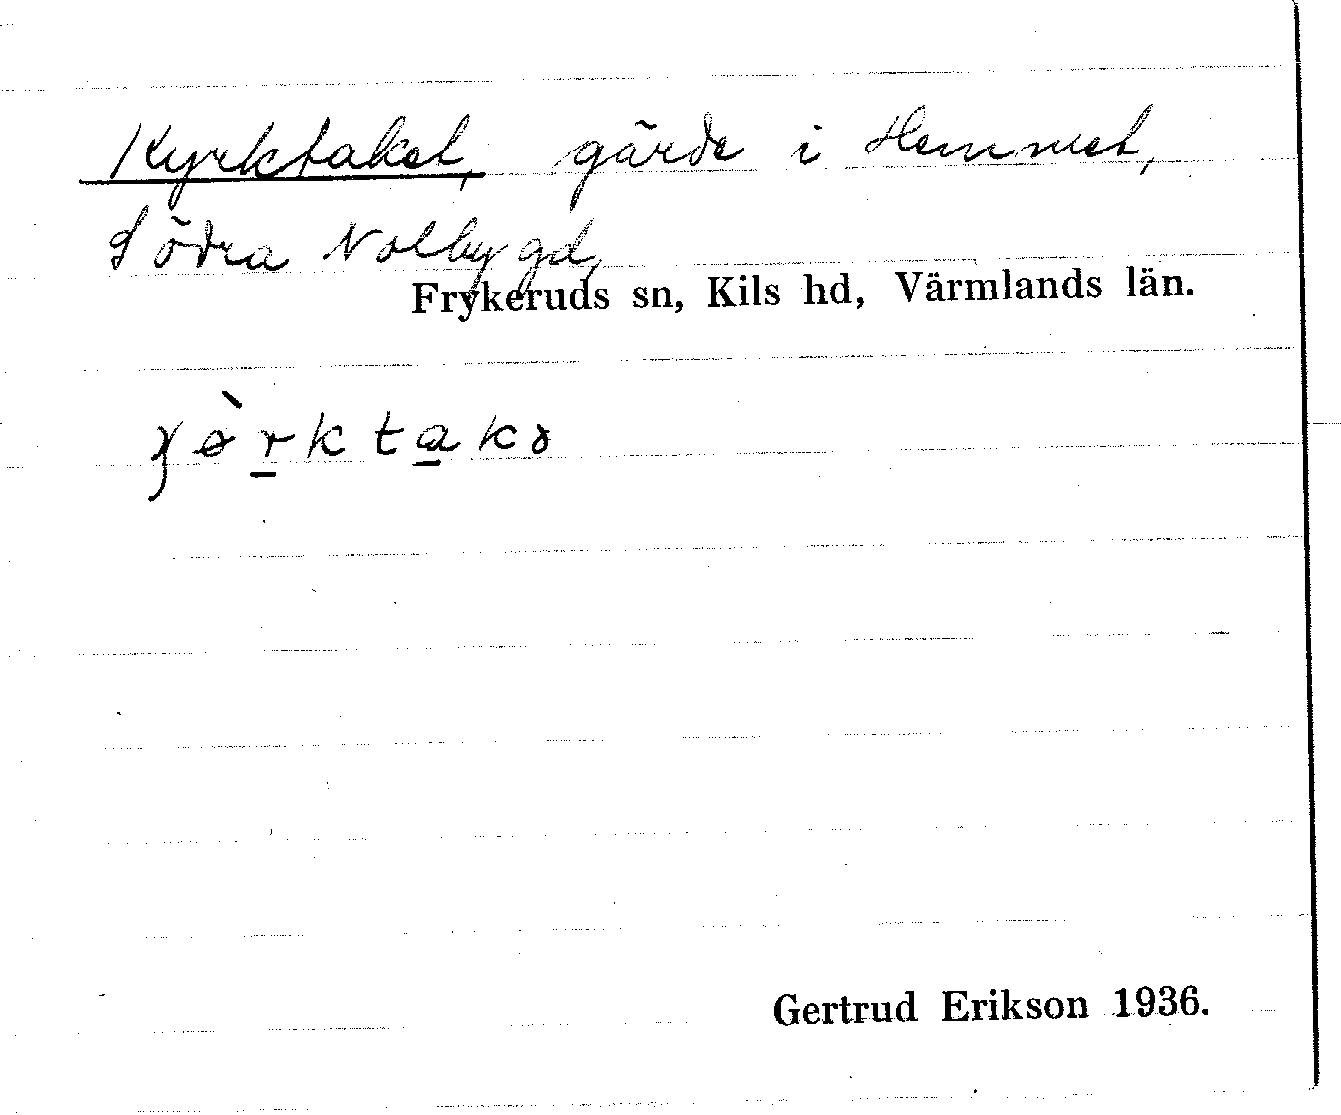 Kyrktaket, gärde i Hemmet,
Södra Nolbygd,
Frykeruds sn, Kils hd, Värmlands län.
Gertrud Erikson 1936.